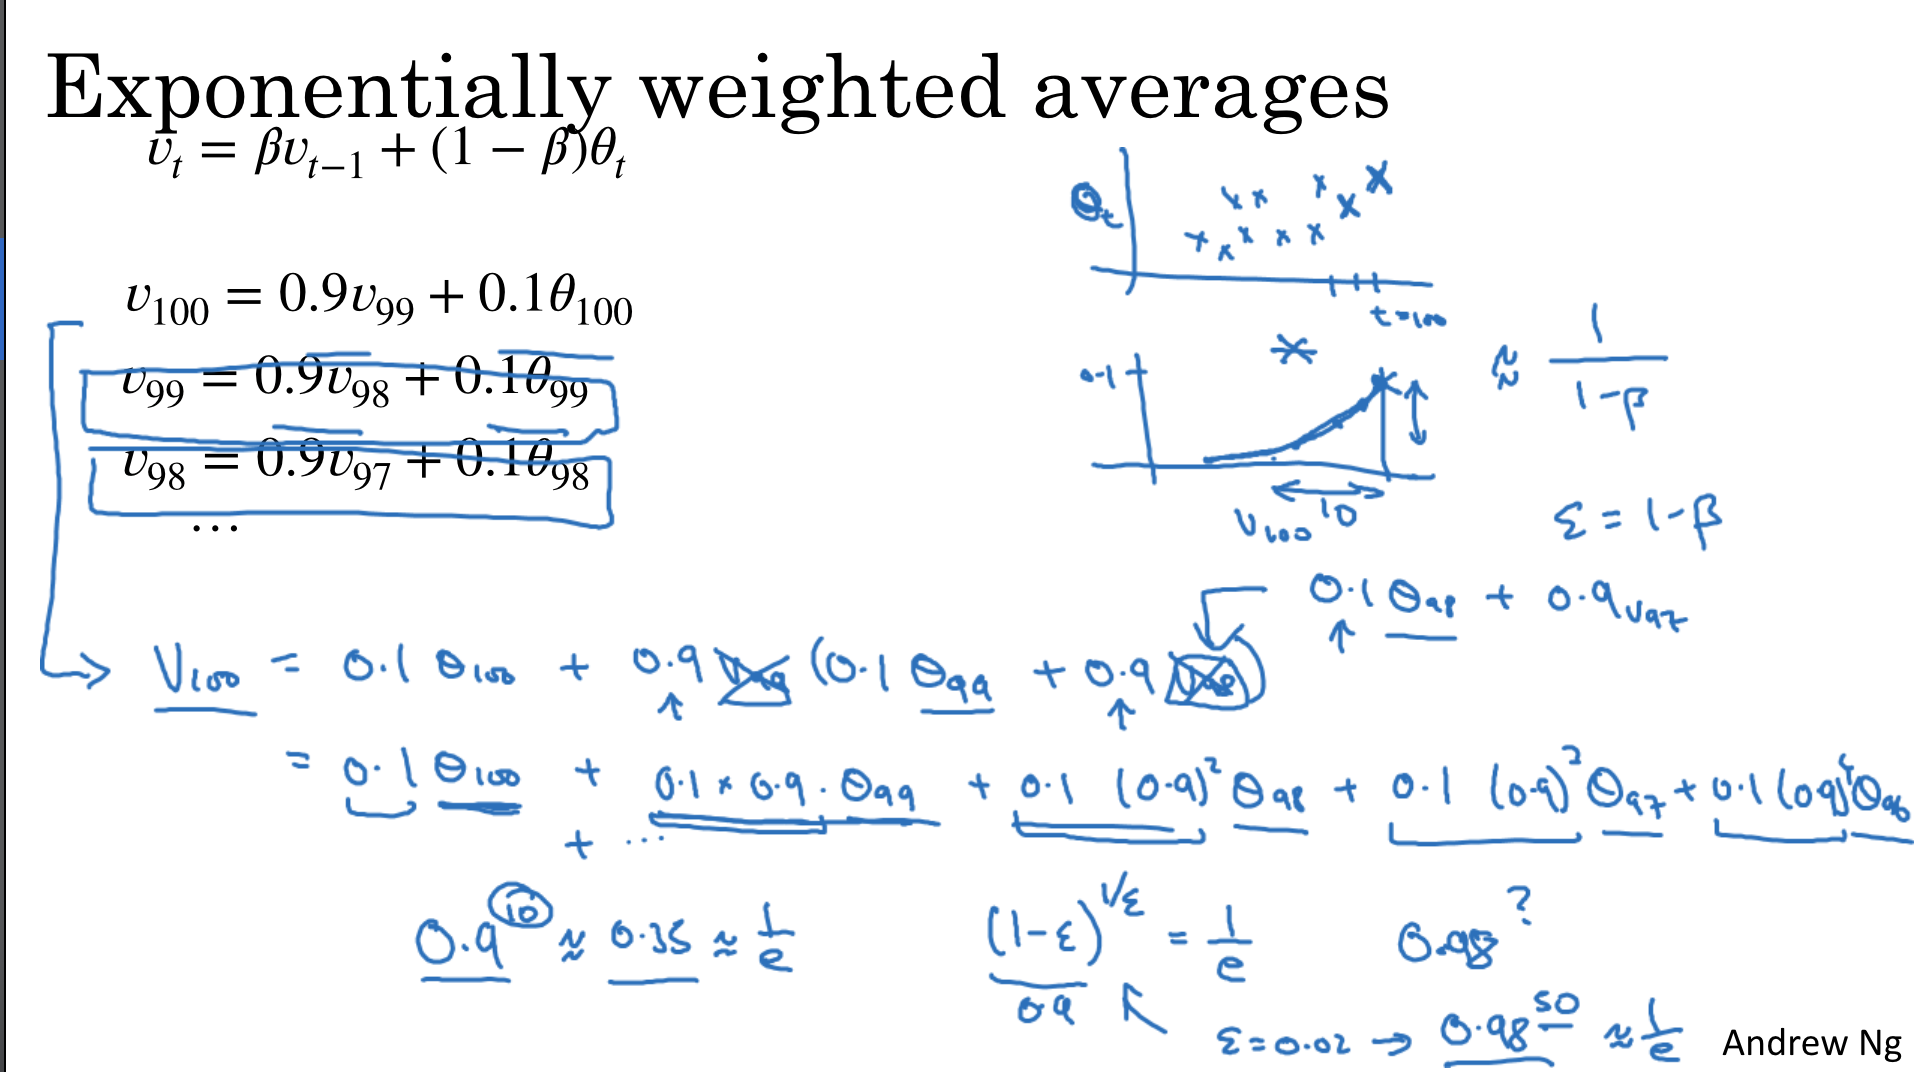 Exponentially weighted averages
v_t = βv_{t−1} + (1 − β)θ_t
v_{100} = 0.9v_{99} + 0.1θ_{100}
v_{99} = 0.9v_{98} + 0.1θ_{99}
v_{98} = 0.9v_{97} + 0.1θ_{98}
...
θ_t
t=100
0.1
10
V_{100}
≈ 1/(1-β)
ε = 1-β
0.1 θ_{98} + 0.9 V_{97}
V_{100} = 0.1 θ_{100} + 0.9 V_{99} (0.1 θ_{99} + 0.9 V_{98})
= 0.1 θ_{100} + 0.1 × 0.9 · θ_{99} + 0.1 (0.9)^2 θ_{98} + 0.1 (0.9)^3 θ_{97} + 0.1 (0.9)^4 θ_{96}
+ ...
0.9^{10} ≈ 0.35 ≈ 1/e
(1-ε)^{1/ε} = 1/e
0.9
0.98 ?
ε = 0.02 → 0.98^{50} ≈ 1/e
Andrew Ng